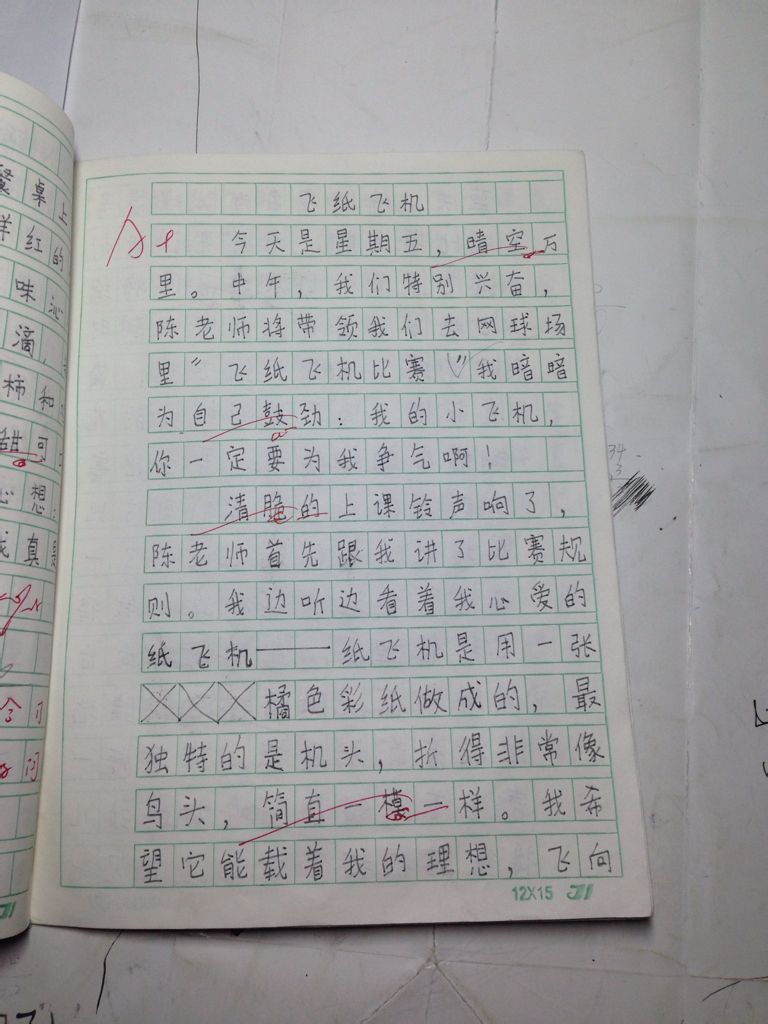 飞纸飞机
A+
今天是星期五，晴空万
里。中午，我们特别兴奋，
陈老师将带领我们去网球场
里“飞纸飞机比赛”我暗暗
为自己鼓劲：我的小飞机，
你一定要为我争气啊！
清脆的上课铃声响了，
陈老师首先跟我讲了比赛规
则。我边听边看着我心爱的
纸飞机——纸飞机是用一张
橘色彩纸做成的，最
独特的是机头，折得非常像
鸟头，简直一模一样。我希
望它能载着我的理想，飞向
12X15
桌上
样红的
味沁
滴，
柿和
甜可
心想
我真是